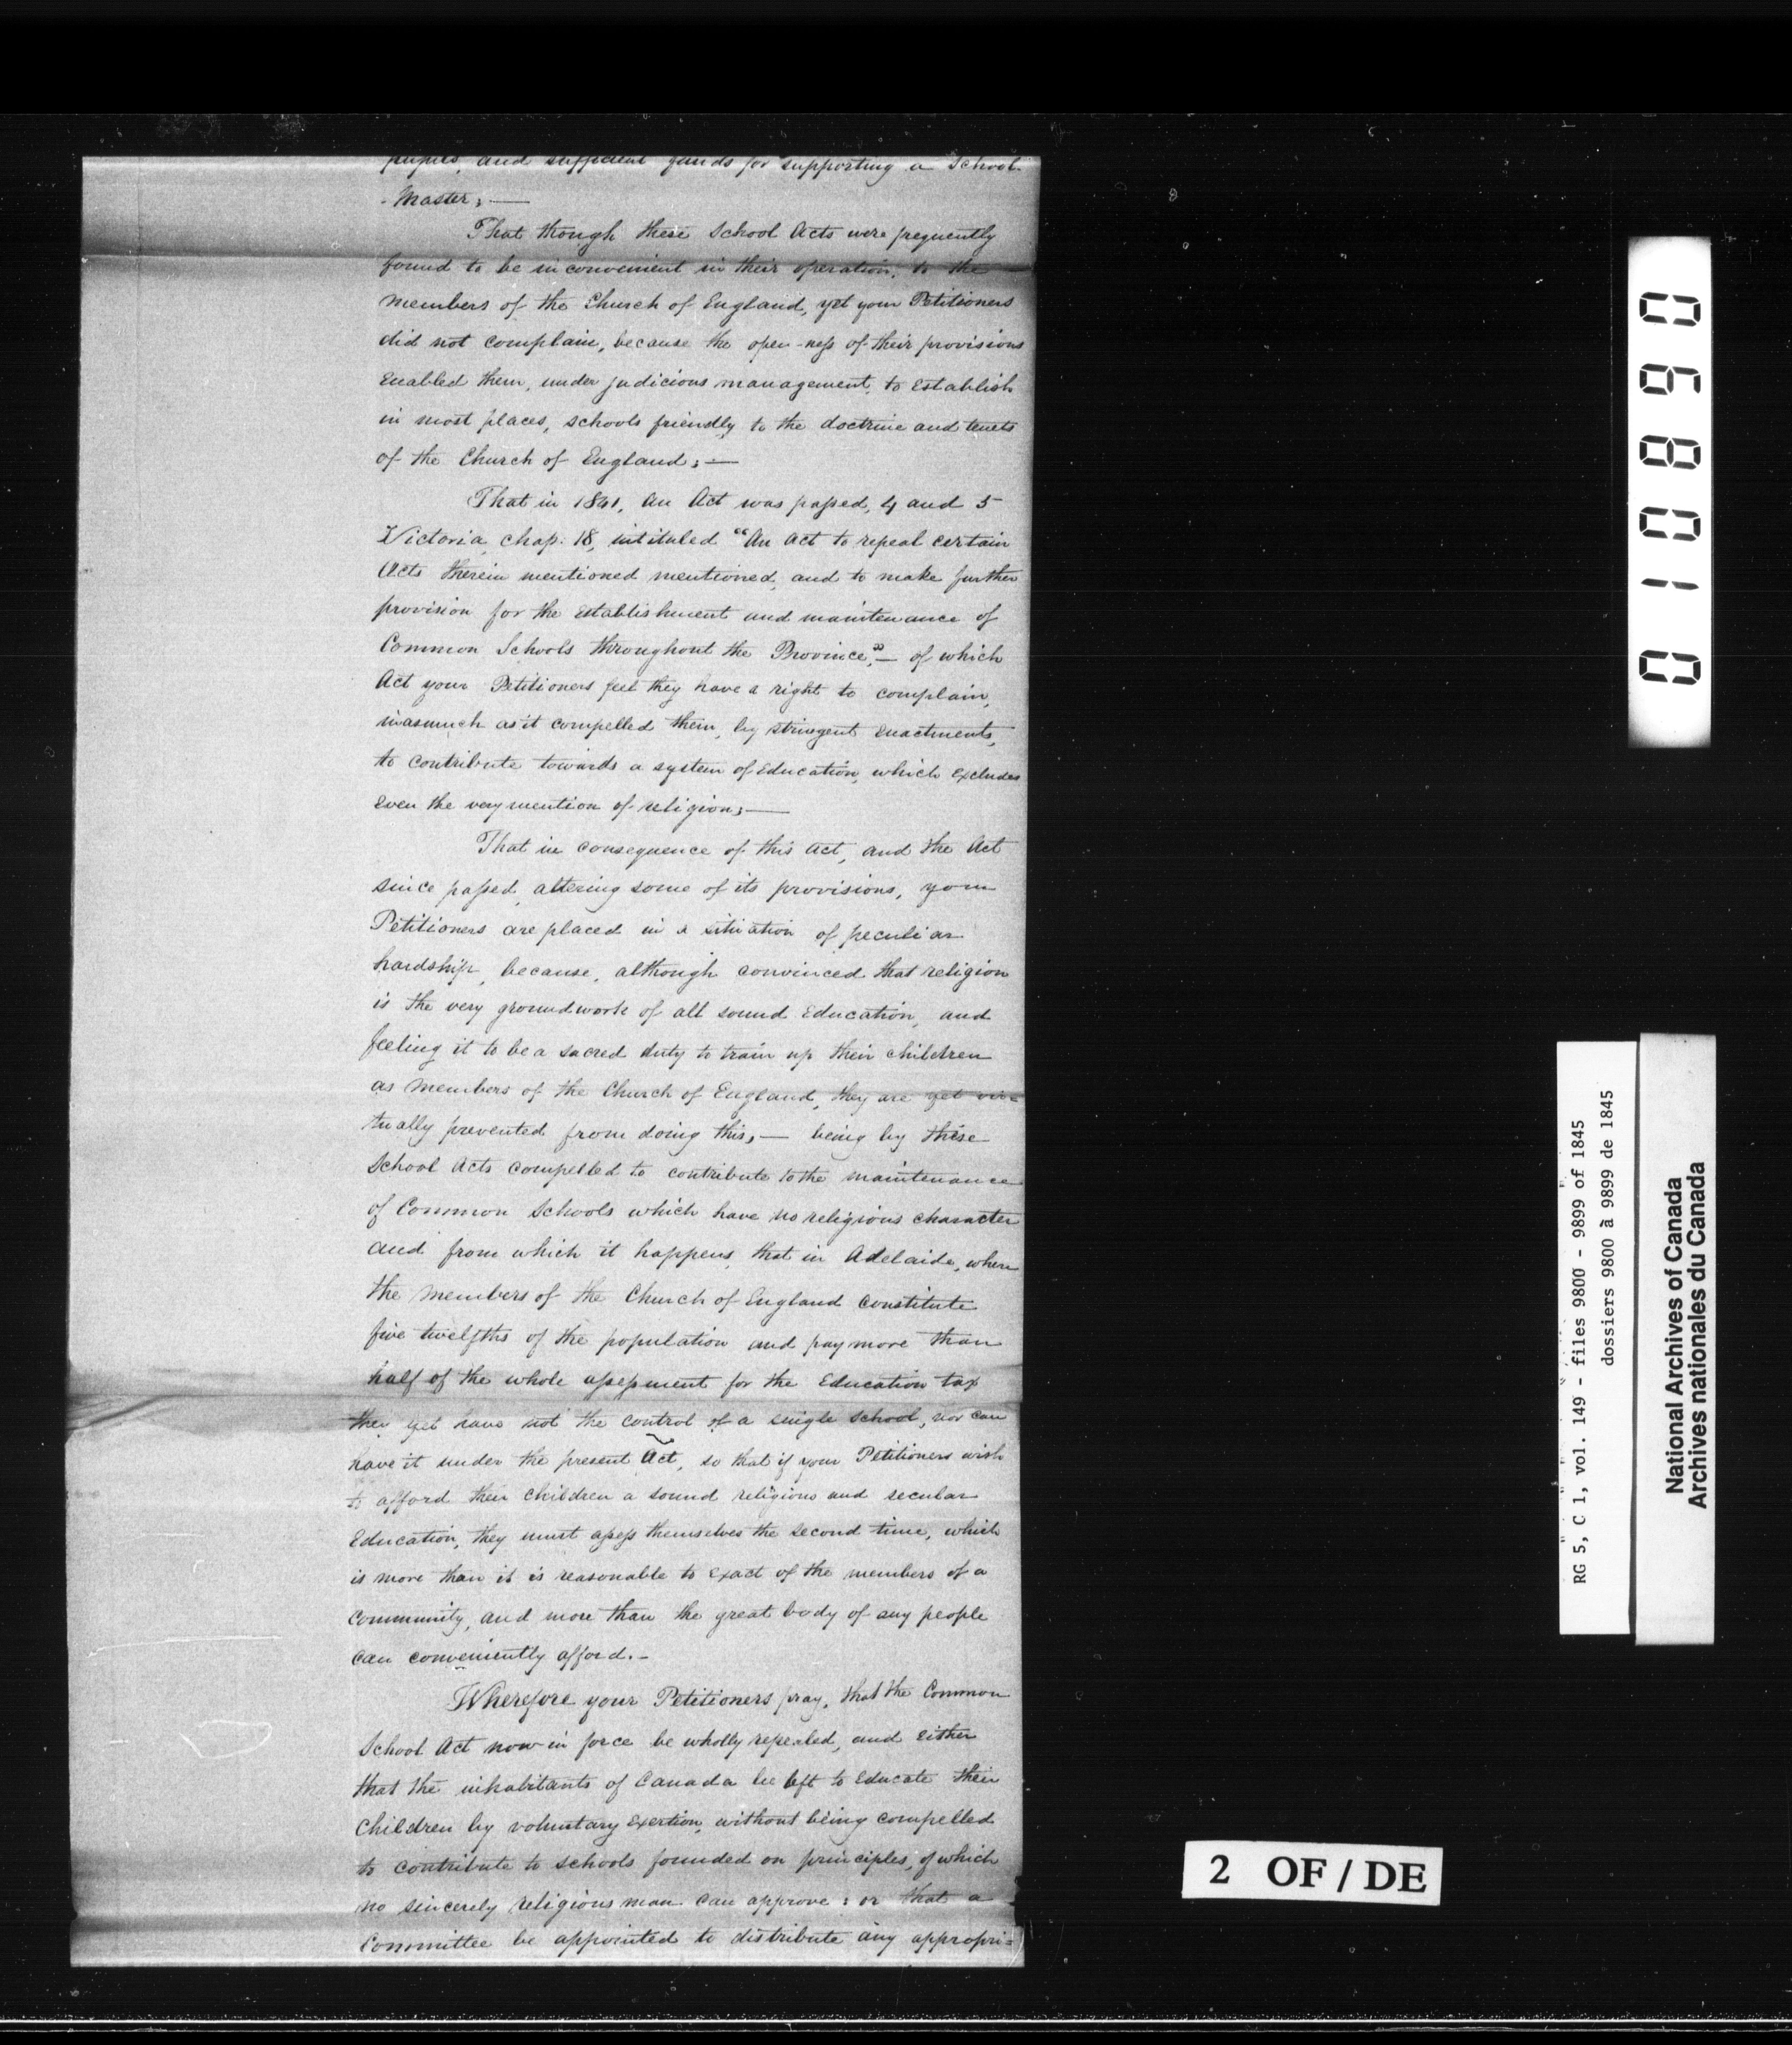 pupils, and sufficient funds for supporting a School-
-Master;—
That though these School Acts were frequently
found to be inconvenient in their operation, to the
members of the Church of England, yet your Petitioners
did not complain, because the open-ness of their provisions
enabled them, under judicious management, to establish
in most places, schools friendly to the doctrine and tenets
of the Church of England;—
That in 1841, an Act was passed, 4 and 5
Victoria, chap. 18, intituled "An Act to repeal certain
Acts therein mentioned mentioned, and to make further
provision for the establishment and maintenance of
Common Schools throughout the Province",— of which
Act your Petitioners feel they have a right to complain,
inasmuch as it compelled them, by stringent enactments,
to contribute towards a system of Education, which excludes
even the very mention of religion;—
That in consequence of this Act, and the Act
since passed, altering some of its provisions, your
Petitioners are placed in a situation of peculiar
hardship, because, although convinced that religion
is the very groundwork of all sound Education, and
feeling it to be a sacred duty to train up their children
as members of the Church of England, they are yet vir=
tually prevented from doing this,— being by these
School Acts compelled to contribute to the maintenance
of Common Schools which have no religious character
and from which it happens, that in Adelaide, where
the members of the Church of England constitute
five twelfths of the population and pay more than
half of the whole assessment for the Education tax
they yet have not the control of a single school, nor can
have it under the present Act, so that if your Petitioners wish
to afford their children a sound religious and secular
Education, they must assess themselves the second time, which
is more than it is reasonable to exact of the members of a
community, and more than the great body of any people
can conveniently afford.—
Wherefore your Petitioners pray, that the Common
School Act now in force be wholly repealed, and either
that the inhabitants of Canada be left to educate their
children by voluntary exertion, without being compelled
to contribute to schools founded on principles, of which
no sincerely religious man can approve: or that a
Committee be appointed to distribute any appropri=
010890
RG 5, C 1, vol. 149 - files 9800 - 9899 of 1845
dossiers 9800 à 9899 de 1845
National Archives of Canada
Archives nationales du Canada
2 OF / DE